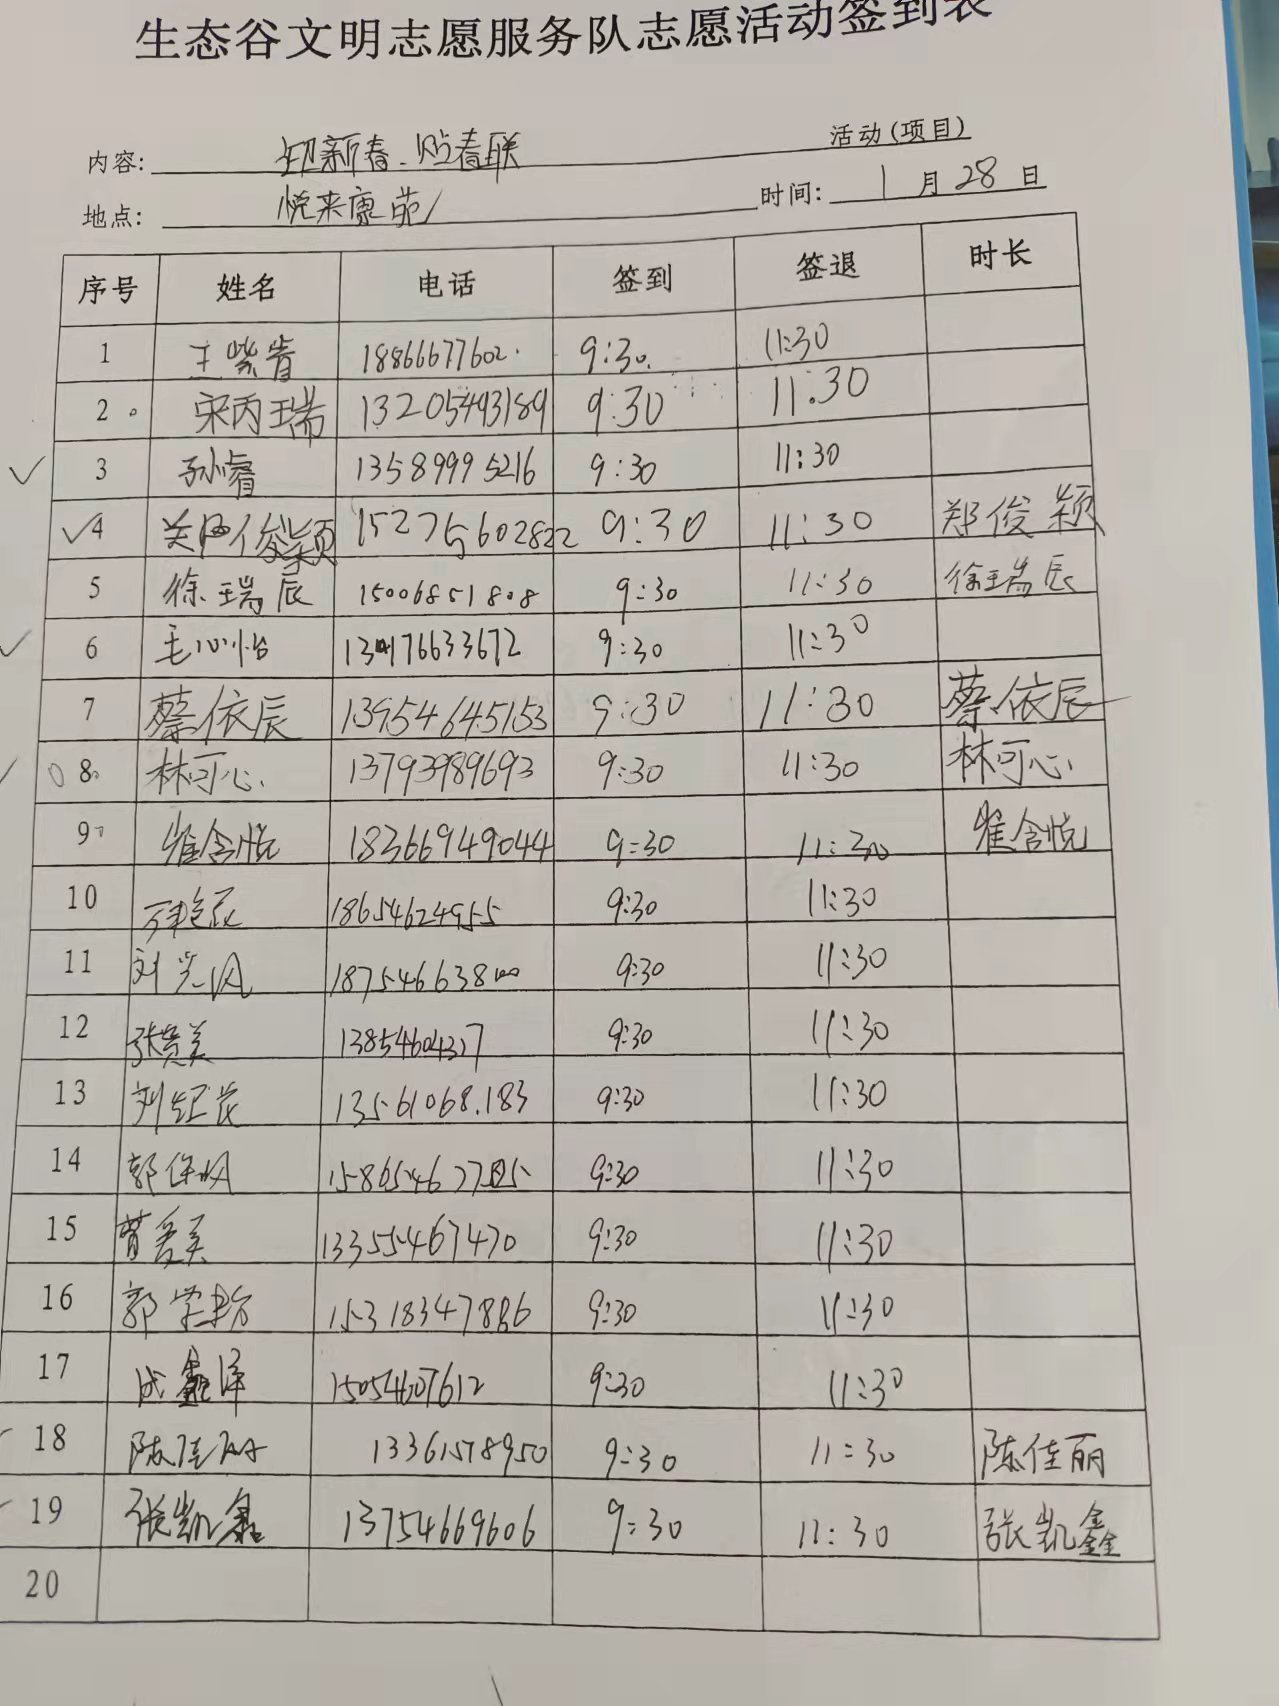 生态谷文明志愿服务队志愿活动签到表
内容: 迎新春.贴春联 活动(项目)
地点: 悦来康苑 时间: 1月28日
序号 姓名 电话 签到 签退 时长
1 王紫肯 18866677602 9:30 11:30
2 宋丙瑞 13205493189 9:30 11:30
3 孙睿 13589995216 9:30 11:30
4 郑俊颖 15275602822 9:30 11:30 郑俊颖
5 徐瑞辰 15006851808 9:30 11:30 徐瑞辰
6 毛心怡 9:30 11:30
7 蔡依辰 13954645153 9:30 11:30 蔡依辰
8 林可心 13793989693 9:30 11:30 林可心
9 崔含悦 18366949044 9:30 11:30 崔含悦
10 18654624955 9:30 11:30
11 刘兰风 18754663800 9:30 11:30
12 9:30 11:30
13 13561068183 9:30 11:30
14 9:30 11:30
15 曹爱美 13355467470 9:30 11:30
16 15318347886 9:30 11:30
17 成鑫泽 15054607612 9:30 11:30
18 陈佳丽 13361578950 9:30 11:30 陈佳丽
19 张凯鑫 13754669606 9:30 11:30 张凯鑫
20